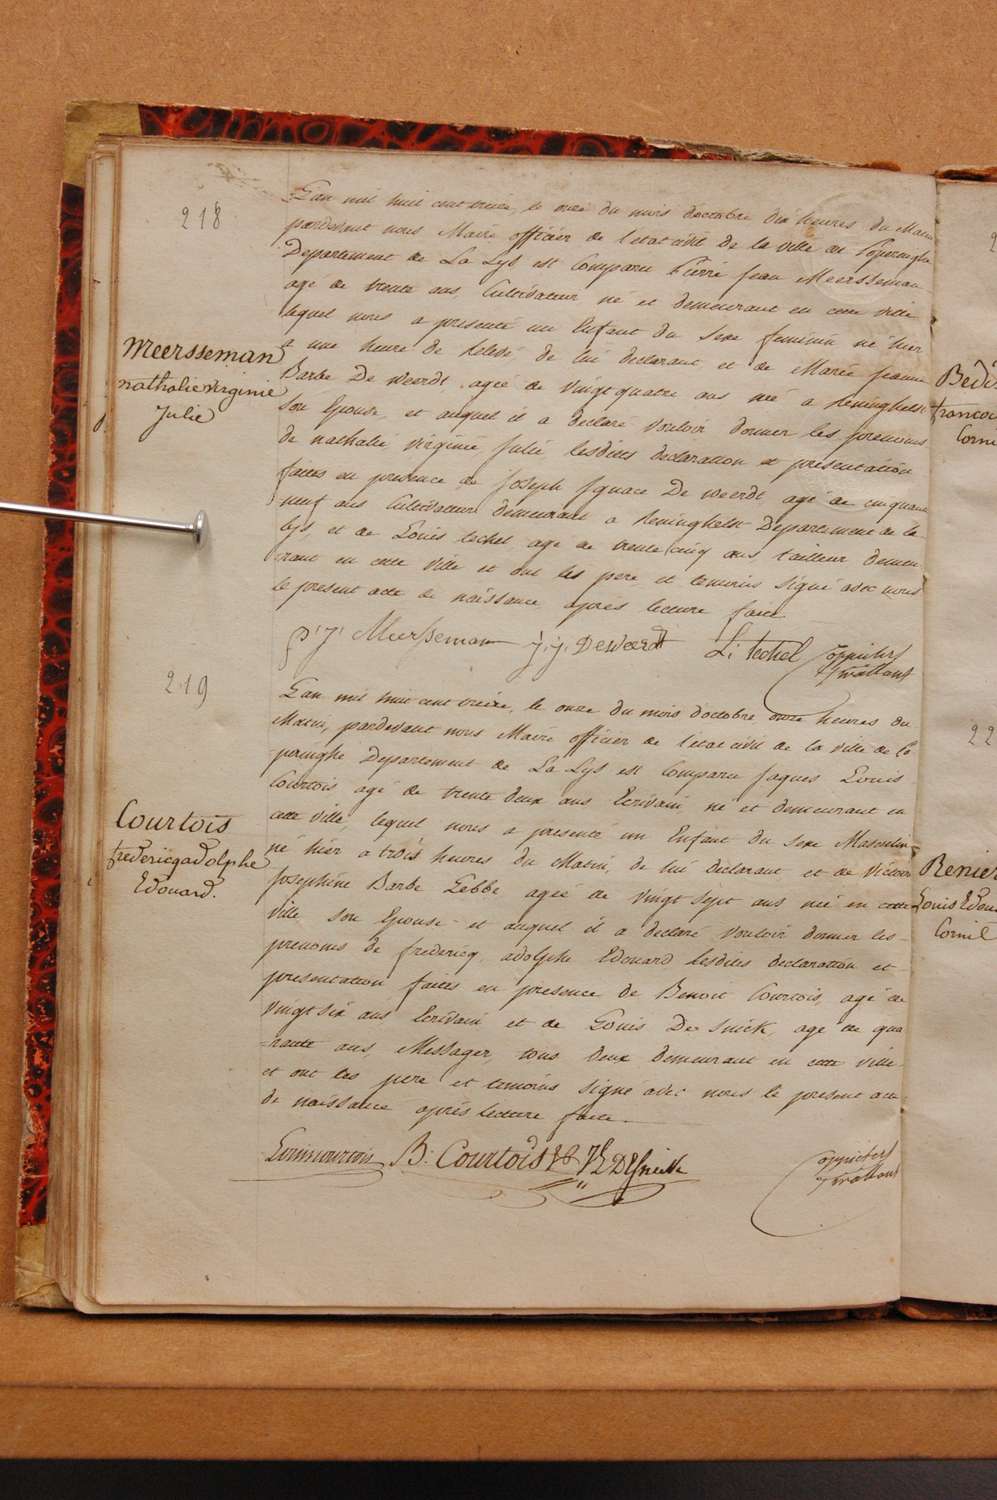 218
L'an mil huit cent treize, le onze du mois d'octobre dix heures du Matin
pardevant nous Maire officier de l'etat civil de la ville de Poperinghe
Departement de La Lys est Comparu Pierre Jean Meersseman
agé de trente ans, Cultivateur né et demeurant en cette ville
lequel nous a presenté un Enfant du Sexe feminin né hier
a une heure de relevé de lui declarant, et de Marie Jeanne
Barbe De Weerdt, agée de vingt quatre ans née a Reninghelst
Son Epouse, et auquel il a declaré vouloir donner les prenoms
de nathalie, virginie Julie lesdites declaration et presentation
faites en presence de Joseph Ignace De Weerdt, agé de cinquante
neuf ans Cultivateur demeurant a Reninghelst Departement de la
Lys, et de Louis techel agé de trente cinq ans, tailleur demeu
rant en cette ville et ont les pere et temoins signé avec nous
le present acte de naissance, après lecture faite
Meersseman
nathalie virginie
Julie
P: J: Meersseman J: J: DeWeerdt L: techel
219
L'an mil huit cent treize, le onze du mois d'octobre onze heures du
Matin, pardevant nous Maire officier de l'etat civil de la ville de Po
peringhe Departement de La Lys est Comparu Jaques Louis
Courtois agé de trente deux ans Ecrivain né et demeurant en
cette ville, lequel nous a presenté un Enfant du Sexe Masculin
né hier a trois heures du Matin, de lui declarant, et de Victoire
Josephine Barbe Lebbe, agée de vingt Sept ans née en cette
ville son Epouse et auquel il a declaré vouloir donner les
prenoms de frederiq, adolphe Edouard lesdites declaration et
presentation faites en presence de Benoit Courtois, agé de
vingt six ans Ecrivain et de Louis De Snick, agé de qua
rante ans, Messager, tous deux demeurant en cette ville
et ont les pere et temoins signé avec nous le present acte
de naissance après lecture faite.
Courtois
frederiq adolphe
Edouard.
B: Courtois
22
Renier
Cornil